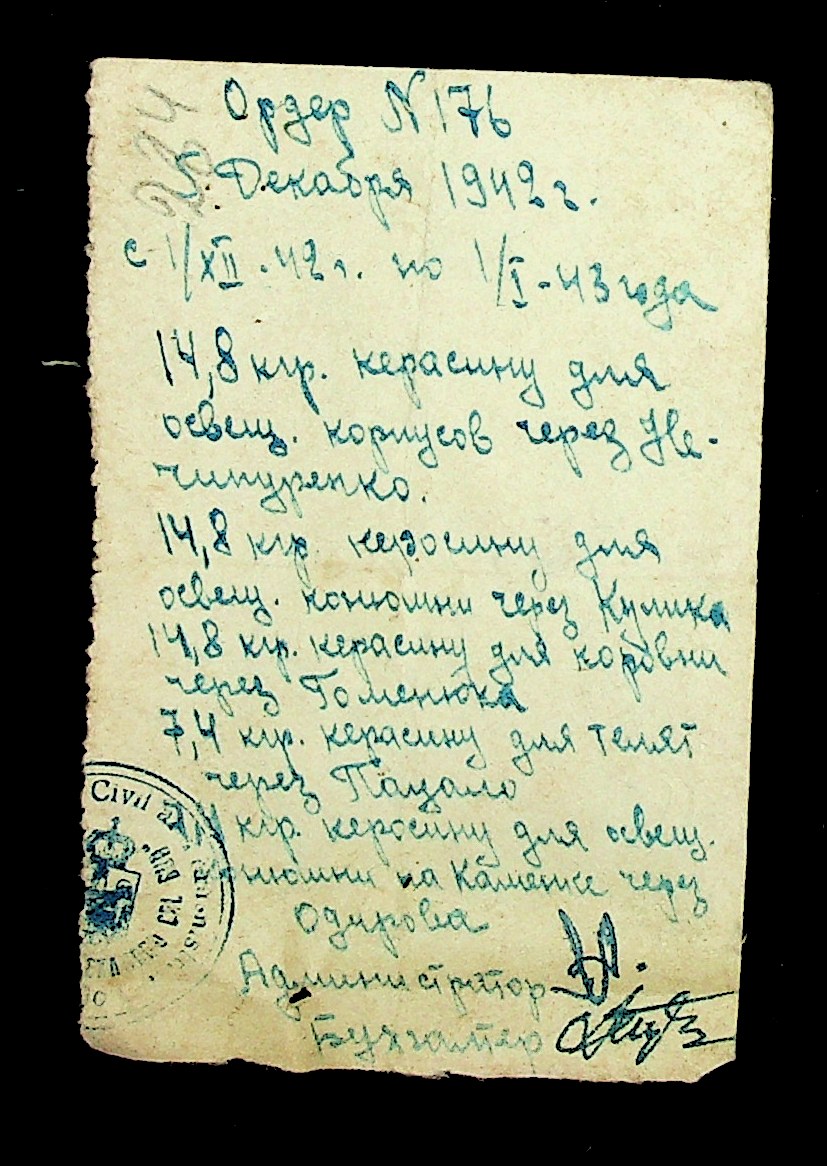 234
Ордер N 176
5. Декабря 1942 г.
с 1/XII - 42 г. по 1/I - 43 года
14,8 кгр. керасину для
освещ. корпусов через Не-
чипуренко.
14,8 кгр. керосину для
освещ. конюшни через Кулика
14,8 кгр. керасину для коровни
через Гоменюка
7,4 кгр. керасину для телят
через Пацало
кгр. керосину для освещ.
конюшни на Каменке через
Одирова
Администратор
Бухгалтер
Civil al